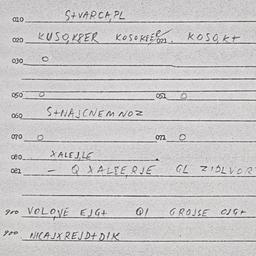 010 S+VARCA,PL
020 KUSQ,K8ER KOSOK8ER/021. KOSO,K+
030 O
050 O 051 O
060 S+NAJCNEMNOZ
070 O 071 O
080 XALE,LE
081 – Q XALEERJE GL
900 VOLOVE EJG+ QI GROJSE OJG+
990 NICAJXREJD+DIK